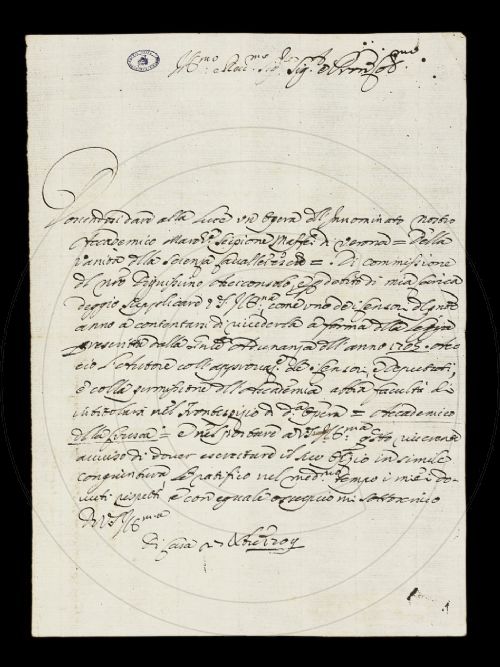 Ill.mo e Rev.mo Sig.r Sig.r e Pron Col.mo
Dovendosi dare alla luce un Opera dell Innominato nostro
Accademico March.e Scipione Maffei di Verona = Della
Vanità della Scienza Cavalleresca = . Di commissione
del nro Arciconsolo, e p debito di mia carica
deggio supplicare V.S. Ill.ma come uno de Censori del pnte
anno a contentarsi di rivederla a forma della legge
prescritta dalla ordinanza dell anno 1705.
ciò l'Autore coll approvaz.e de Censori, e Deputati,
e colla permissione dell Accademia abbia facultà di
intitolarsi nel frontespizio di d.a opera = Accademico
della Crusca = e nel portare a V.S. Ill.ma q.sto riverente
avviso di dover esercitare il suo ofizio in simile
congiuntura le ratifico nel med.mo tempo i miei do-
vuti rispetti e con eguale ossequio mi sottoscrivo
Di V.S. Ill.ma
Di Casa 1709